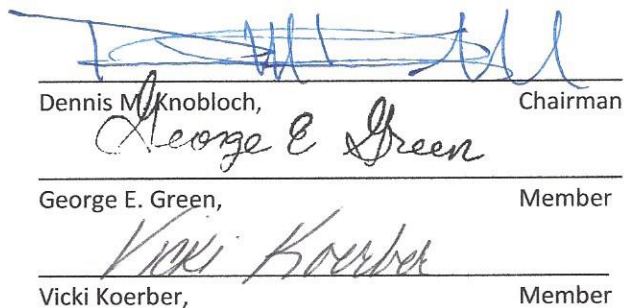 Dennis M. Knobloch, Chairman
George E Green
George E. Green, Member
Vicki Koerber
Vicki Koerber, Member